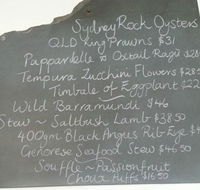 Sydney Rock Oysters
QLD King Prawns $31
Pappardelle & Oxtail Ragu $28
Tempura Zucchini Flowers $28
Timbale of Eggplant $22
Wild Barramundi $46
Stew ~ Saltbush Lamb $38.50
400gm Black Angus Rib Eye $4
Genorese Seafood Stew $46.50
Souffle ~ Passionfruit
Choux Puffs $16.50